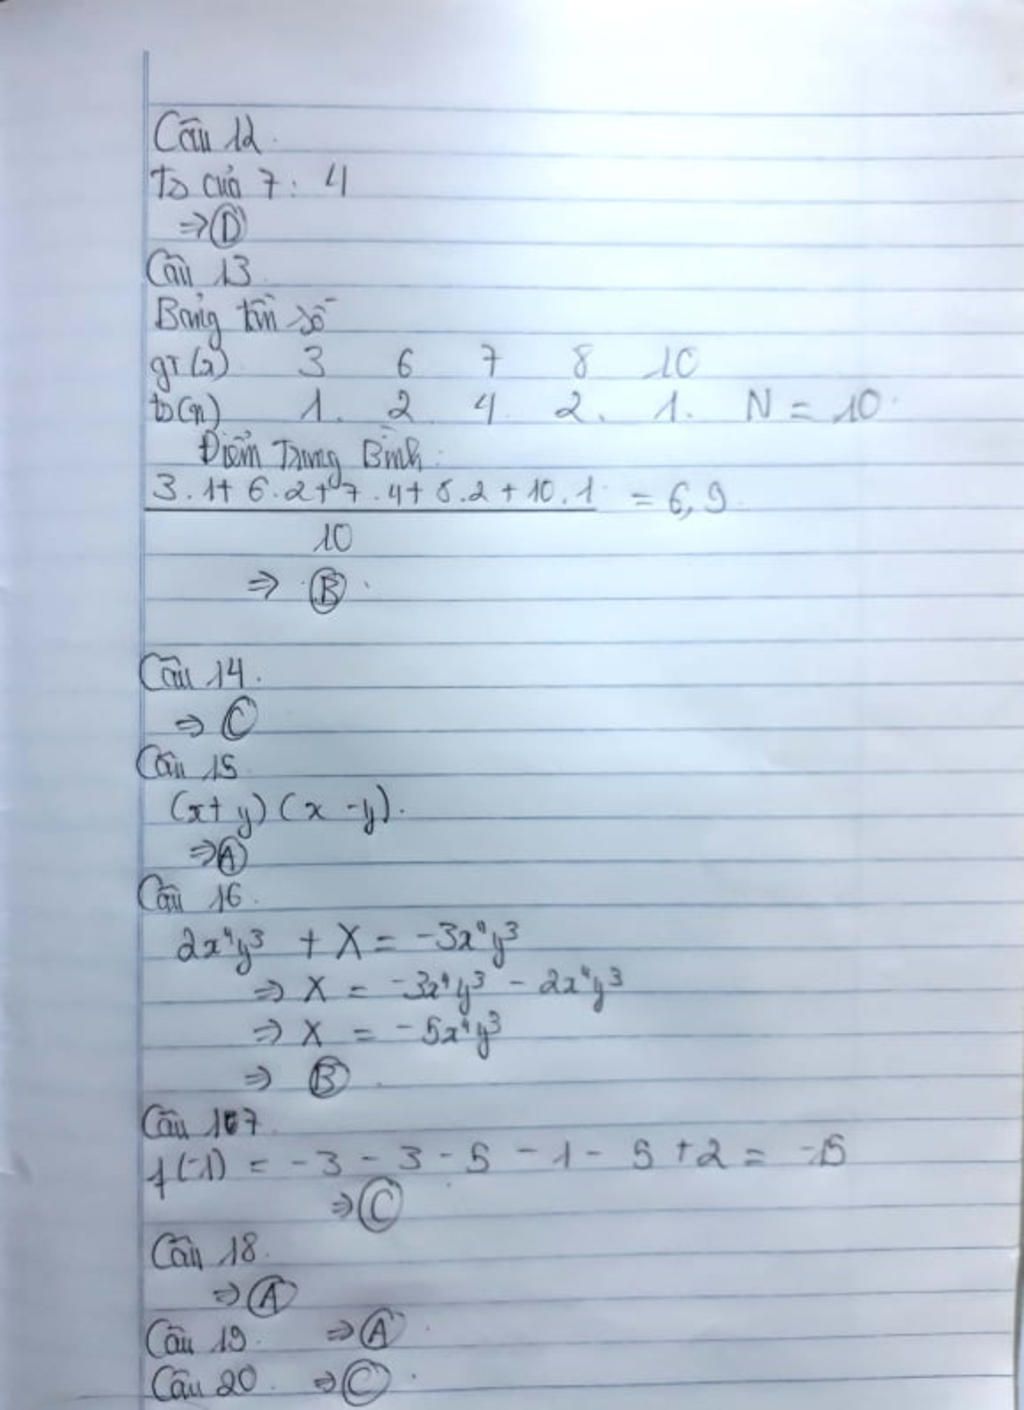 Câu 12.
ts của 7: 4
⇒ D
Câu 13
Bảng tần số
gT (x) 3 6 7 8 10
ts (n) 1. 2 4 2. 1. N = 10.
Điểm Trung Bình:
3.1 + 6.2 + 7.4 + 8.2 + 10.1 = 6,9
10
⇒ B.
Câu 14.
⇒ C
Câu 15
(x+y)(x-y).
⇒ A
Câu 16.
2x⁴y³ + X = -3x⁴y³
⇒ X = -3x⁴y³ - 2x⁴y³
⇒ X = -5x⁴y³
⇒ B.
Câu 17
f(-1) = -3 - 3 - 5 - 1 - 5 + 2 = -15
⇒ C
Câu 18.
⇒ A
Câu 19. ⇒ A.
Câu 20. ⇒ C.